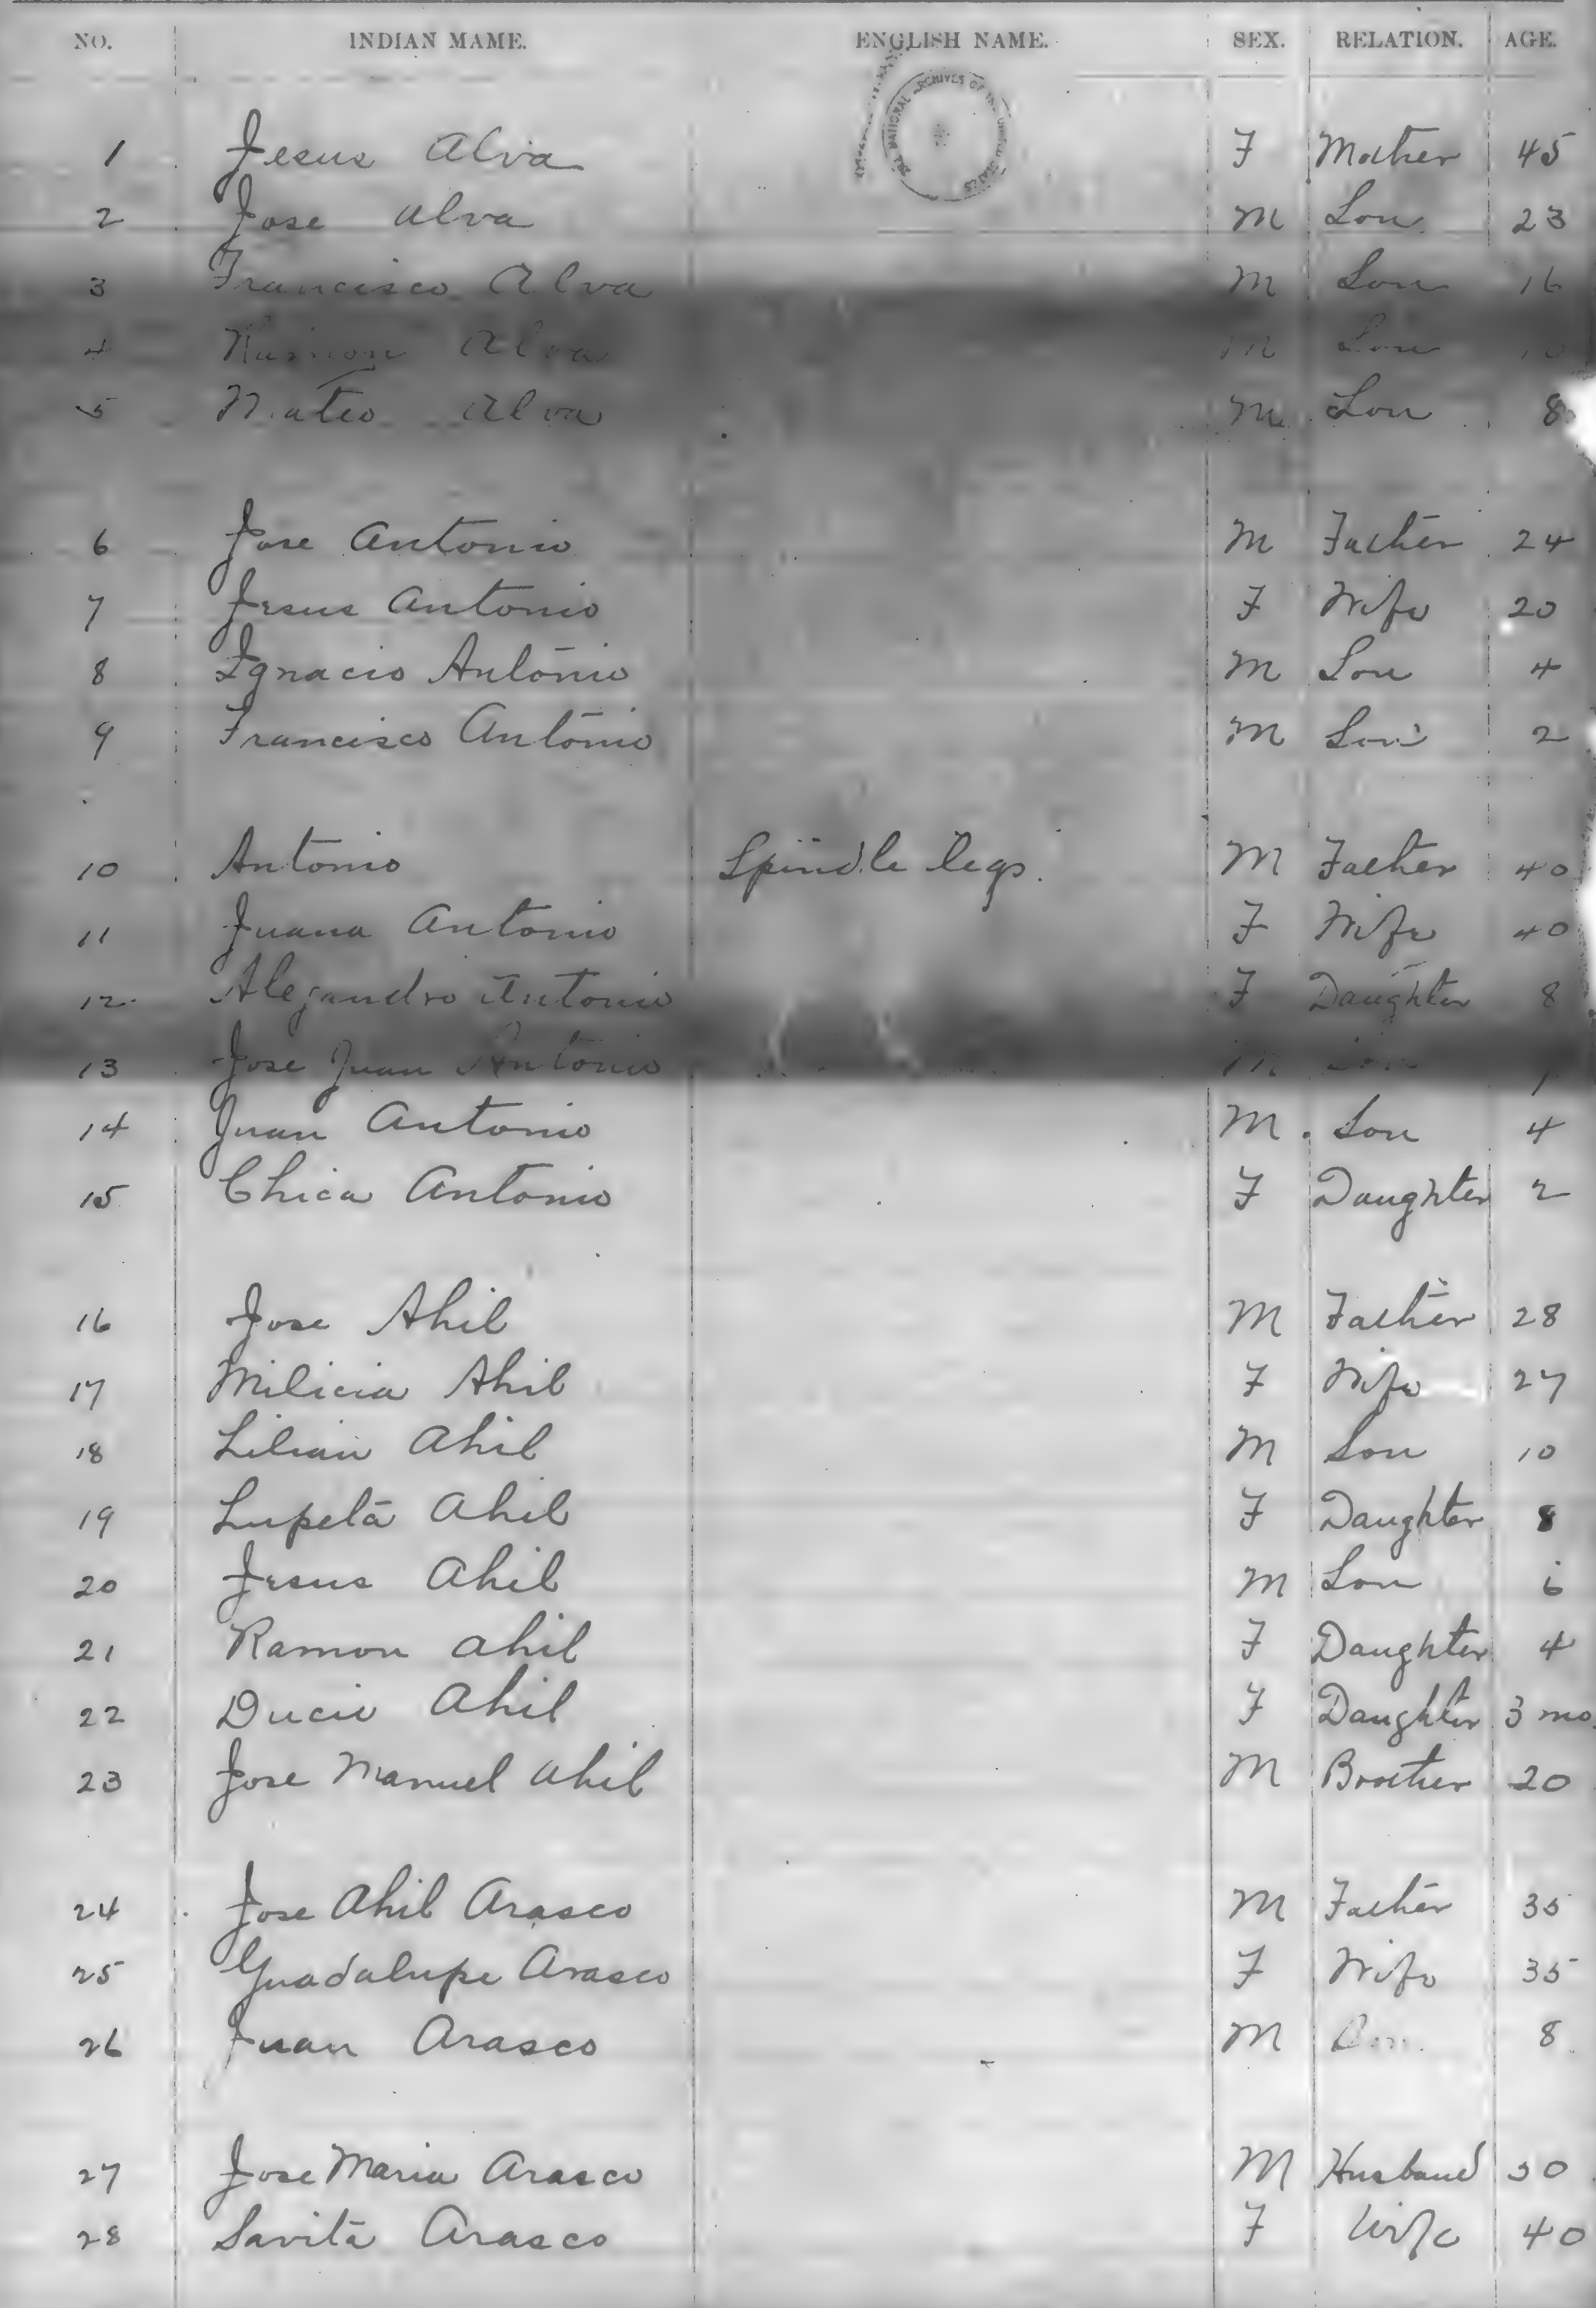 NO. INDIAN MAME. ENGLISH NAME. SEX. RELATION. AGE.
THE NATIONAL ARCHIVES OF THE UNITED STATES
1 Jesus Alva F Mother 45
2 Jose Alva M Son 23
3 Francisco Alva M Son 16
4 Alva M Son 10
5 Mateo Alva M Son 8
6 Jose Antonio M Father 24
7 Jesus Antonio F Wife 20
8 Ignacio Antonio M Son 4
9 Francisco Antonio M Son 2
10 Antonio Spindle legs. M Father 40
11 Juana Antonio F Wife 40
12 Alejandro Antonio F Daughter 8
13 Jose Juan Antonio M Son
14 Juan Antonio M Son 4
15 Chica Antonio F Daughter 2
16 Jose Ahil M Father 28
17 Milicia Ahil F Wife 27
18 Lilian Ahil M Son 10
19 Lupeta Ahil F Daughter 8
20 Jesus Ahil M Son 6
21 Ramon Ahil F Daughter 4
22 Ducie Ahil F Daughter 3 mo.
23 Jose Manuel Ahil M Brother 20
24 Jose Ahil Arasco M Father 35
25 Guadalupe Arasco F Wife 35
26 Juan Arasco M Son 8
27 Jose Maria Arasco M Husband 50
28 Savita Arasco F Wife 40